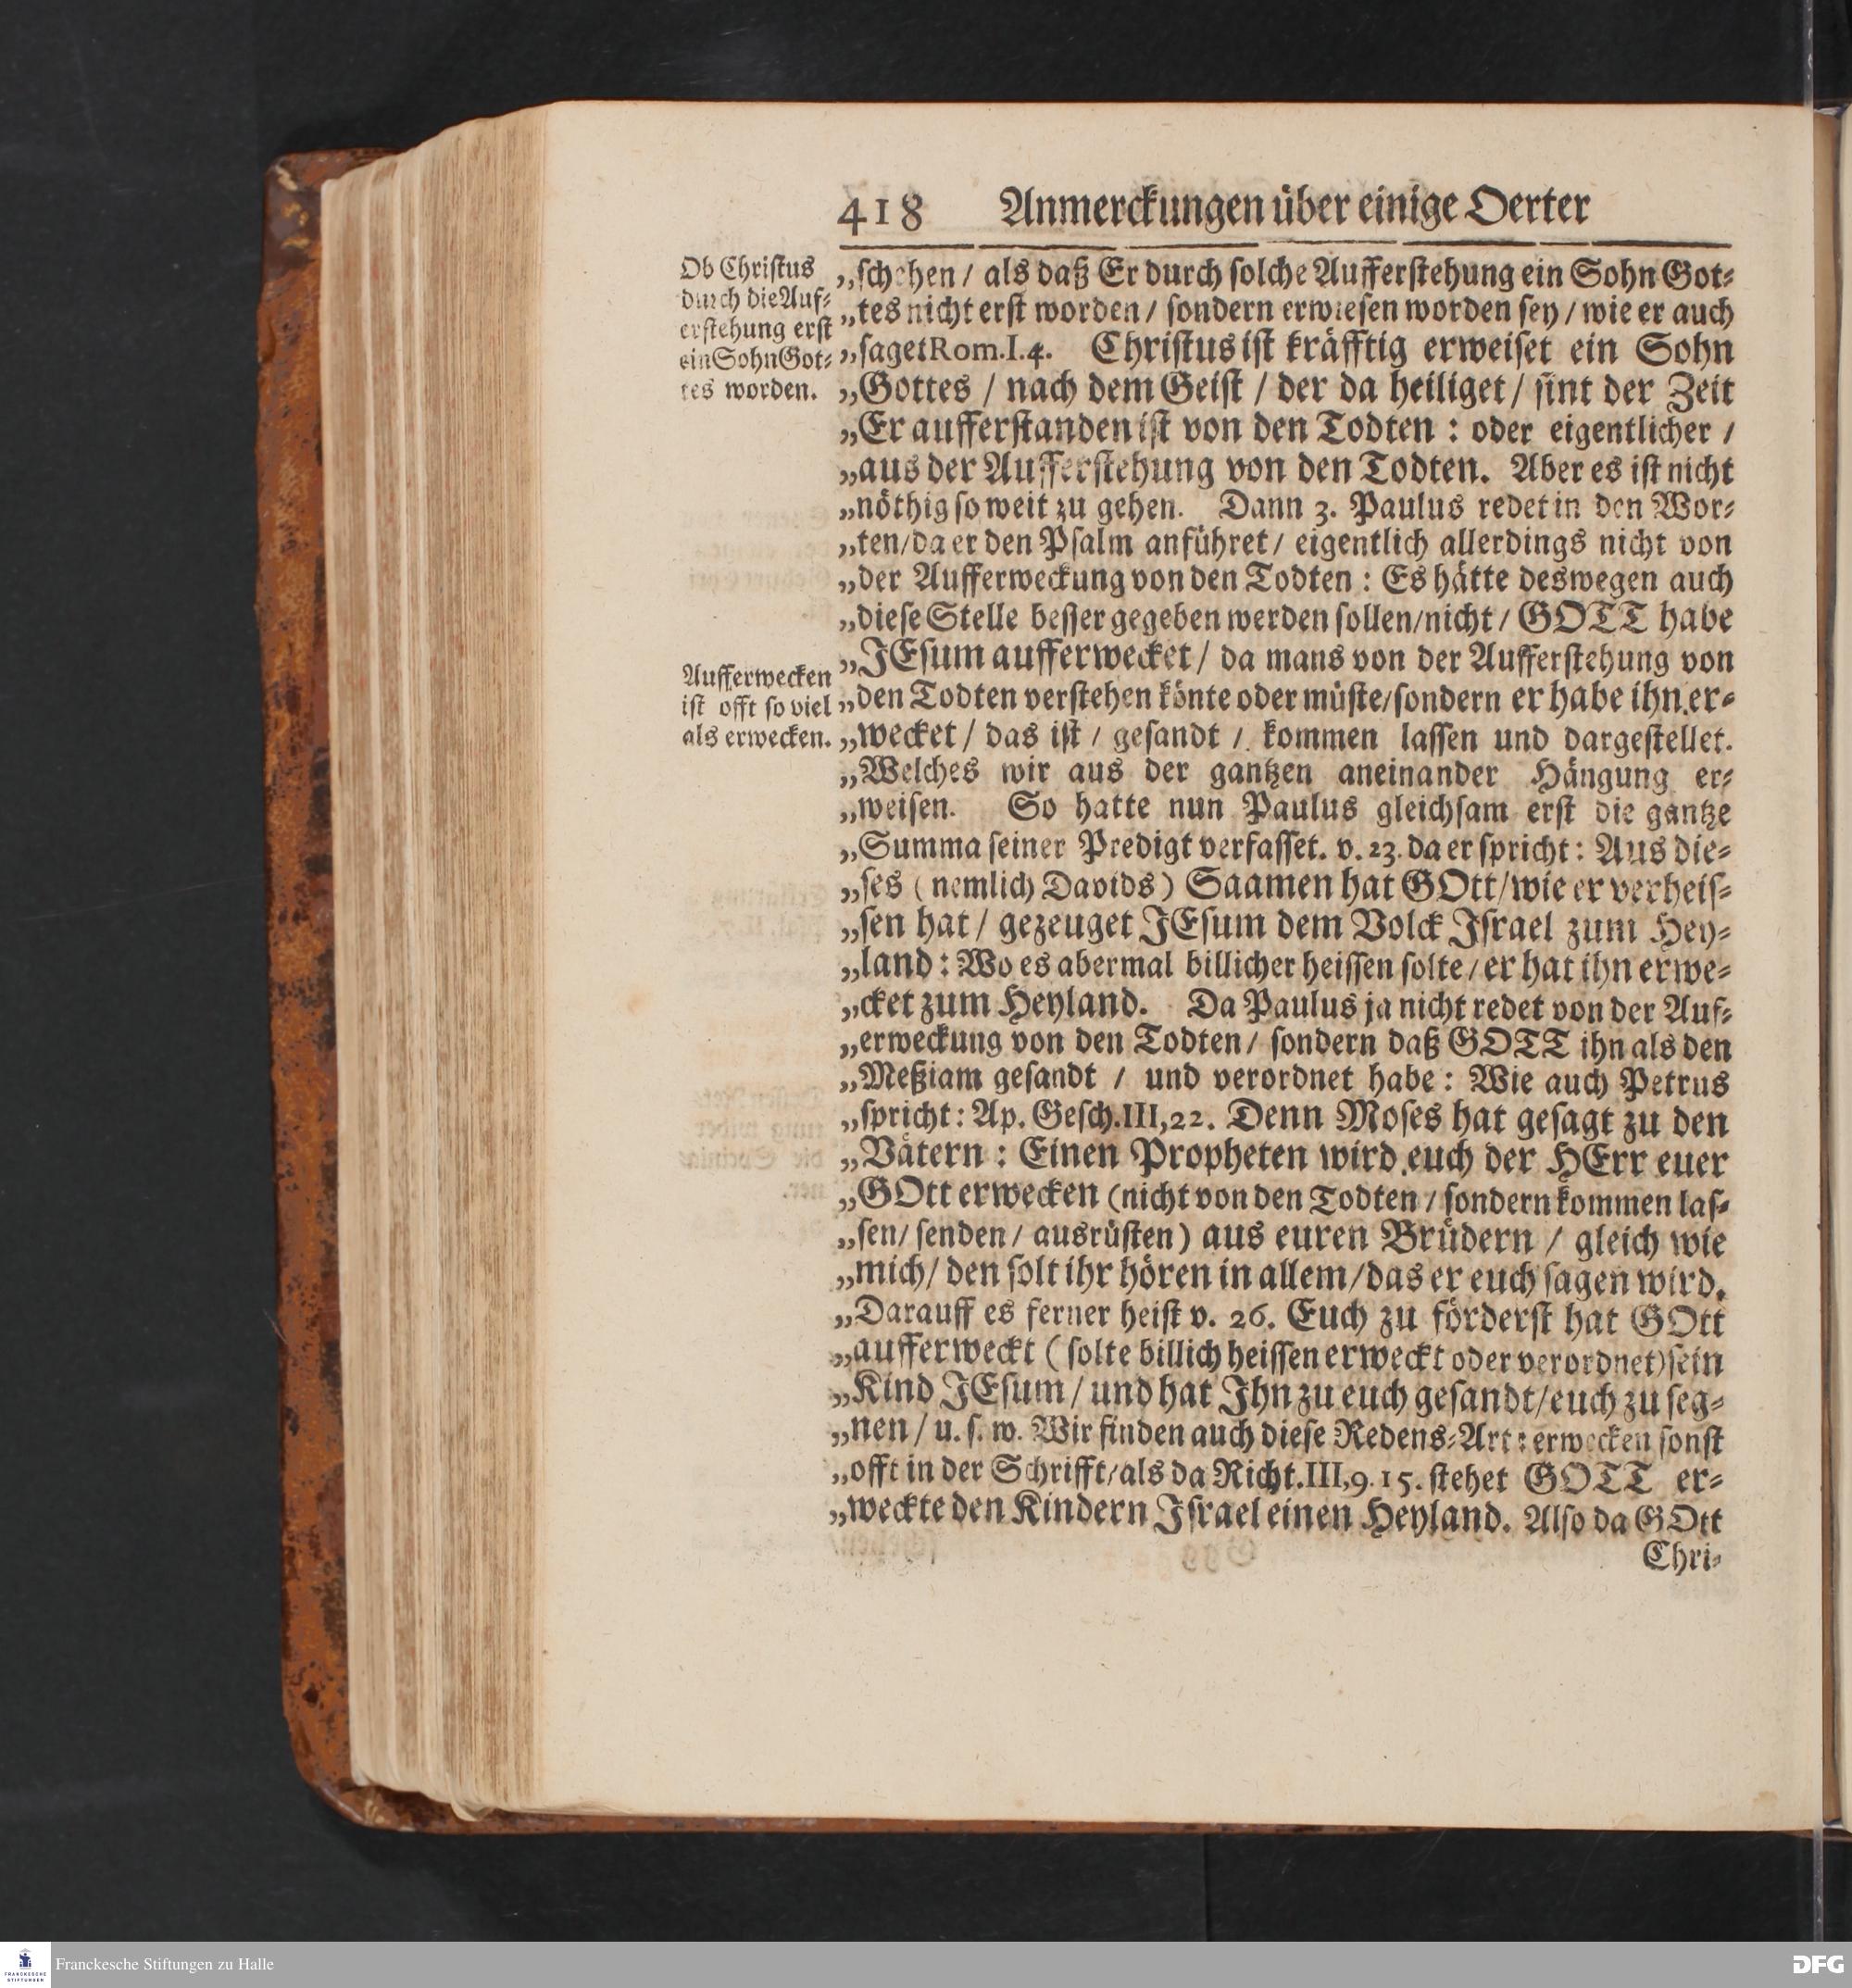 418 Anmerckungen über einige Oerter
Ob Christus
durch die Auf-
erstehung erst
ein Sohn Got-
tes worden.
„schehen / als daß Er durch solche Aufferstehung ein Sohn Got-
„tes nicht erst worden / sondern erwiesen worden sey / wie er auch
„saget Rom. I. 4. Christus ist kräfftig erweiset ein Sohn
„Gottes / nach dem Geist / der da heiliget / sint der Zeit
„Er aufferstanden ist von den Todten : oder eigentlicher /
„aus der Aufferstehung von den Todten. Aber es ist nicht
„nöthig so weit zu gehen. Dann 3. Paulus redet in den Wor-
„ten / da er den Psalm anführet / eigentlich allerdings nicht von
„der Aufferweckung von den Todten : Es hätte deswegen auch
„diese Stelle besser gegeben werden sollen / nicht / GOTT habe
„JEsum aufferwecket / da mans von der Aufferstehung von
Aufferwecken
ist offt so viel
als erwecken.
„den Todten verstehen könte oder müste / sondern er habe ihn er-
„wecket / das ist / gesandt / kommen lassen und dargestellet.
„Welches wir aus der gantzen aneinander Hängung er-
„weisen. So hatte nun Paulus gleichsam erst die gantze
„Summa seiner Predigt verfasset. v. 23. da er spricht : Aus die-
„ses ( nemlich Davids ) Saamen hat GOtt / wie er verheis-
„sen hat / gezeuget JEsum dem Volck Israel zum Hey-
„land : Wo es abermal billicher heissen solte / er hat ihn erwe-
„cket zum Heyland. Da Paulus ja nicht redet von der Auf-
„erweckung von den Todten / sondern daß GOTT ihn als den
„Meßiam gesandt / und verordnet habe : Wie auch Petrus
„spricht : Ap. Gesch. III, 22. Denn Moses hat gesagt zu den
„Vätern : Einen Propheten wird euch der HErr euer
„GOtt erwecken (nicht von den Todten / sondern kommen las-
„sen / senden / ausrüsten ) aus euren Brüdern / gleich wie
„mich / den solt ihr hören in allem / das er euch sagen wird.
„Darauff es ferner heist v. 26. Euch zu förderst hat GOtt
„aufferweckt ( solte billich heissen erweckt oder verordnet) sein
„Kind JEsum / und hat Ihn zu euch gesandt / euch zu seg-
„nen / u. s. w. Wir finden auch diese Redens-Art : erwecken sonst
„offt in der Schrifft / als da Richt. III, 9. 15. stehet GOTT er-
„weckte den Kindern Israel einen Heyland. Also da GOtt
Chri-
FRANCKESCHE STIFTUNGEN
Franckesche Stiftungen zu Halle
DFG